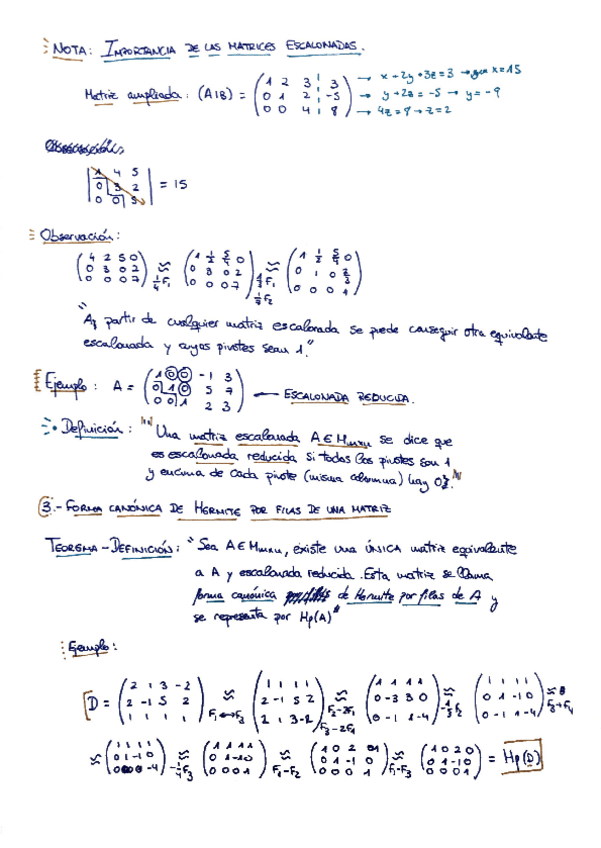 NOTA: IMPORTANCIA DE LAS MATRICES ESCALONADAS.
Matriz ampliada: (A|B) = ( 1 2 3 | 3 → x + 2y + 3z = 3 → x = 15
0 1 2 | -5 → y + 2z = -5 → y = -9
0 0 4 | 8 ) → 4z = 8 → z = 2
| 1 4 5
0 3 2 | = 15
0 0 5 |
Observación:
( 4 2 5 0 ( 1 1/2 5/4 0 ( 1 1/2 5/4 0
0 3 0 2 ≈ 0 3 0 2 ≈ 0 1 0 2/3
0 0 0 7 ) 1/4 F₁ 0 0 0 7 ) 1/3 F₁ 1/7 F₂ 0 0 0 1 )
"A partir de cualquier matriz escalonada se puede conseguir otra equivalente
escalonada y cuyos pivotes sean 1."
Ejemplo: A = ( 1 0 0 -1 3
0 1 0 5 7
0 0 1 2 3 ) — ESCALONADA REDUCIDA.
• Definición: "Una matriz escalonada A ∈ Mmxn se dice que
es escalonada reducida si todos los pivotes son 1
y encima de cada pivote (misma columna) hay 0s."
3.- FORMA CANÓNICA DE HERMITE POR FILAS DE UNA MATRIZ
TEOREMA - DEFINICIÓN: "Sea A ∈ Mmxn, existe una ÚNICA matriz equivalente
a A y escalonada reducida. Esta matriz se llama
forma canónica de Hermite por filas de A y
se representa por Hf(A)"
Ejemplo:
D = ( 2 1 3 -2 ( 1 1 1 1 ( 1 1 1 1 ( 1 1 1 1
2 -1 5 2 ≈ 2 -1 5 2 ≈ 0 -3 3 0 ≈ 0 1 -1 0 ≈
1 1 1 1 ) F₁↔F₃ 2 1 3 -2 ) F₂-2F₁ F₃-2F₁ 0 -1 1 -4 ) -1/3 F₂ 0 -1 1 -4 )
≈ ( 1 1 1 1 ( 1 1 1 1 ( 1 0 2 1 ( 1 0 2 0
0 1 -1 0 ≈ 0 1 -1 0 ≈ 0 1 -1 0 ≈ 0 1 -1 0 = Hf(D)
0 0 0 -4 ) -1/4 F₃ 0 0 0 1 ) F₁-F₂ 0 0 0 1 ) F₁-F₃ 0 0 0 1 )